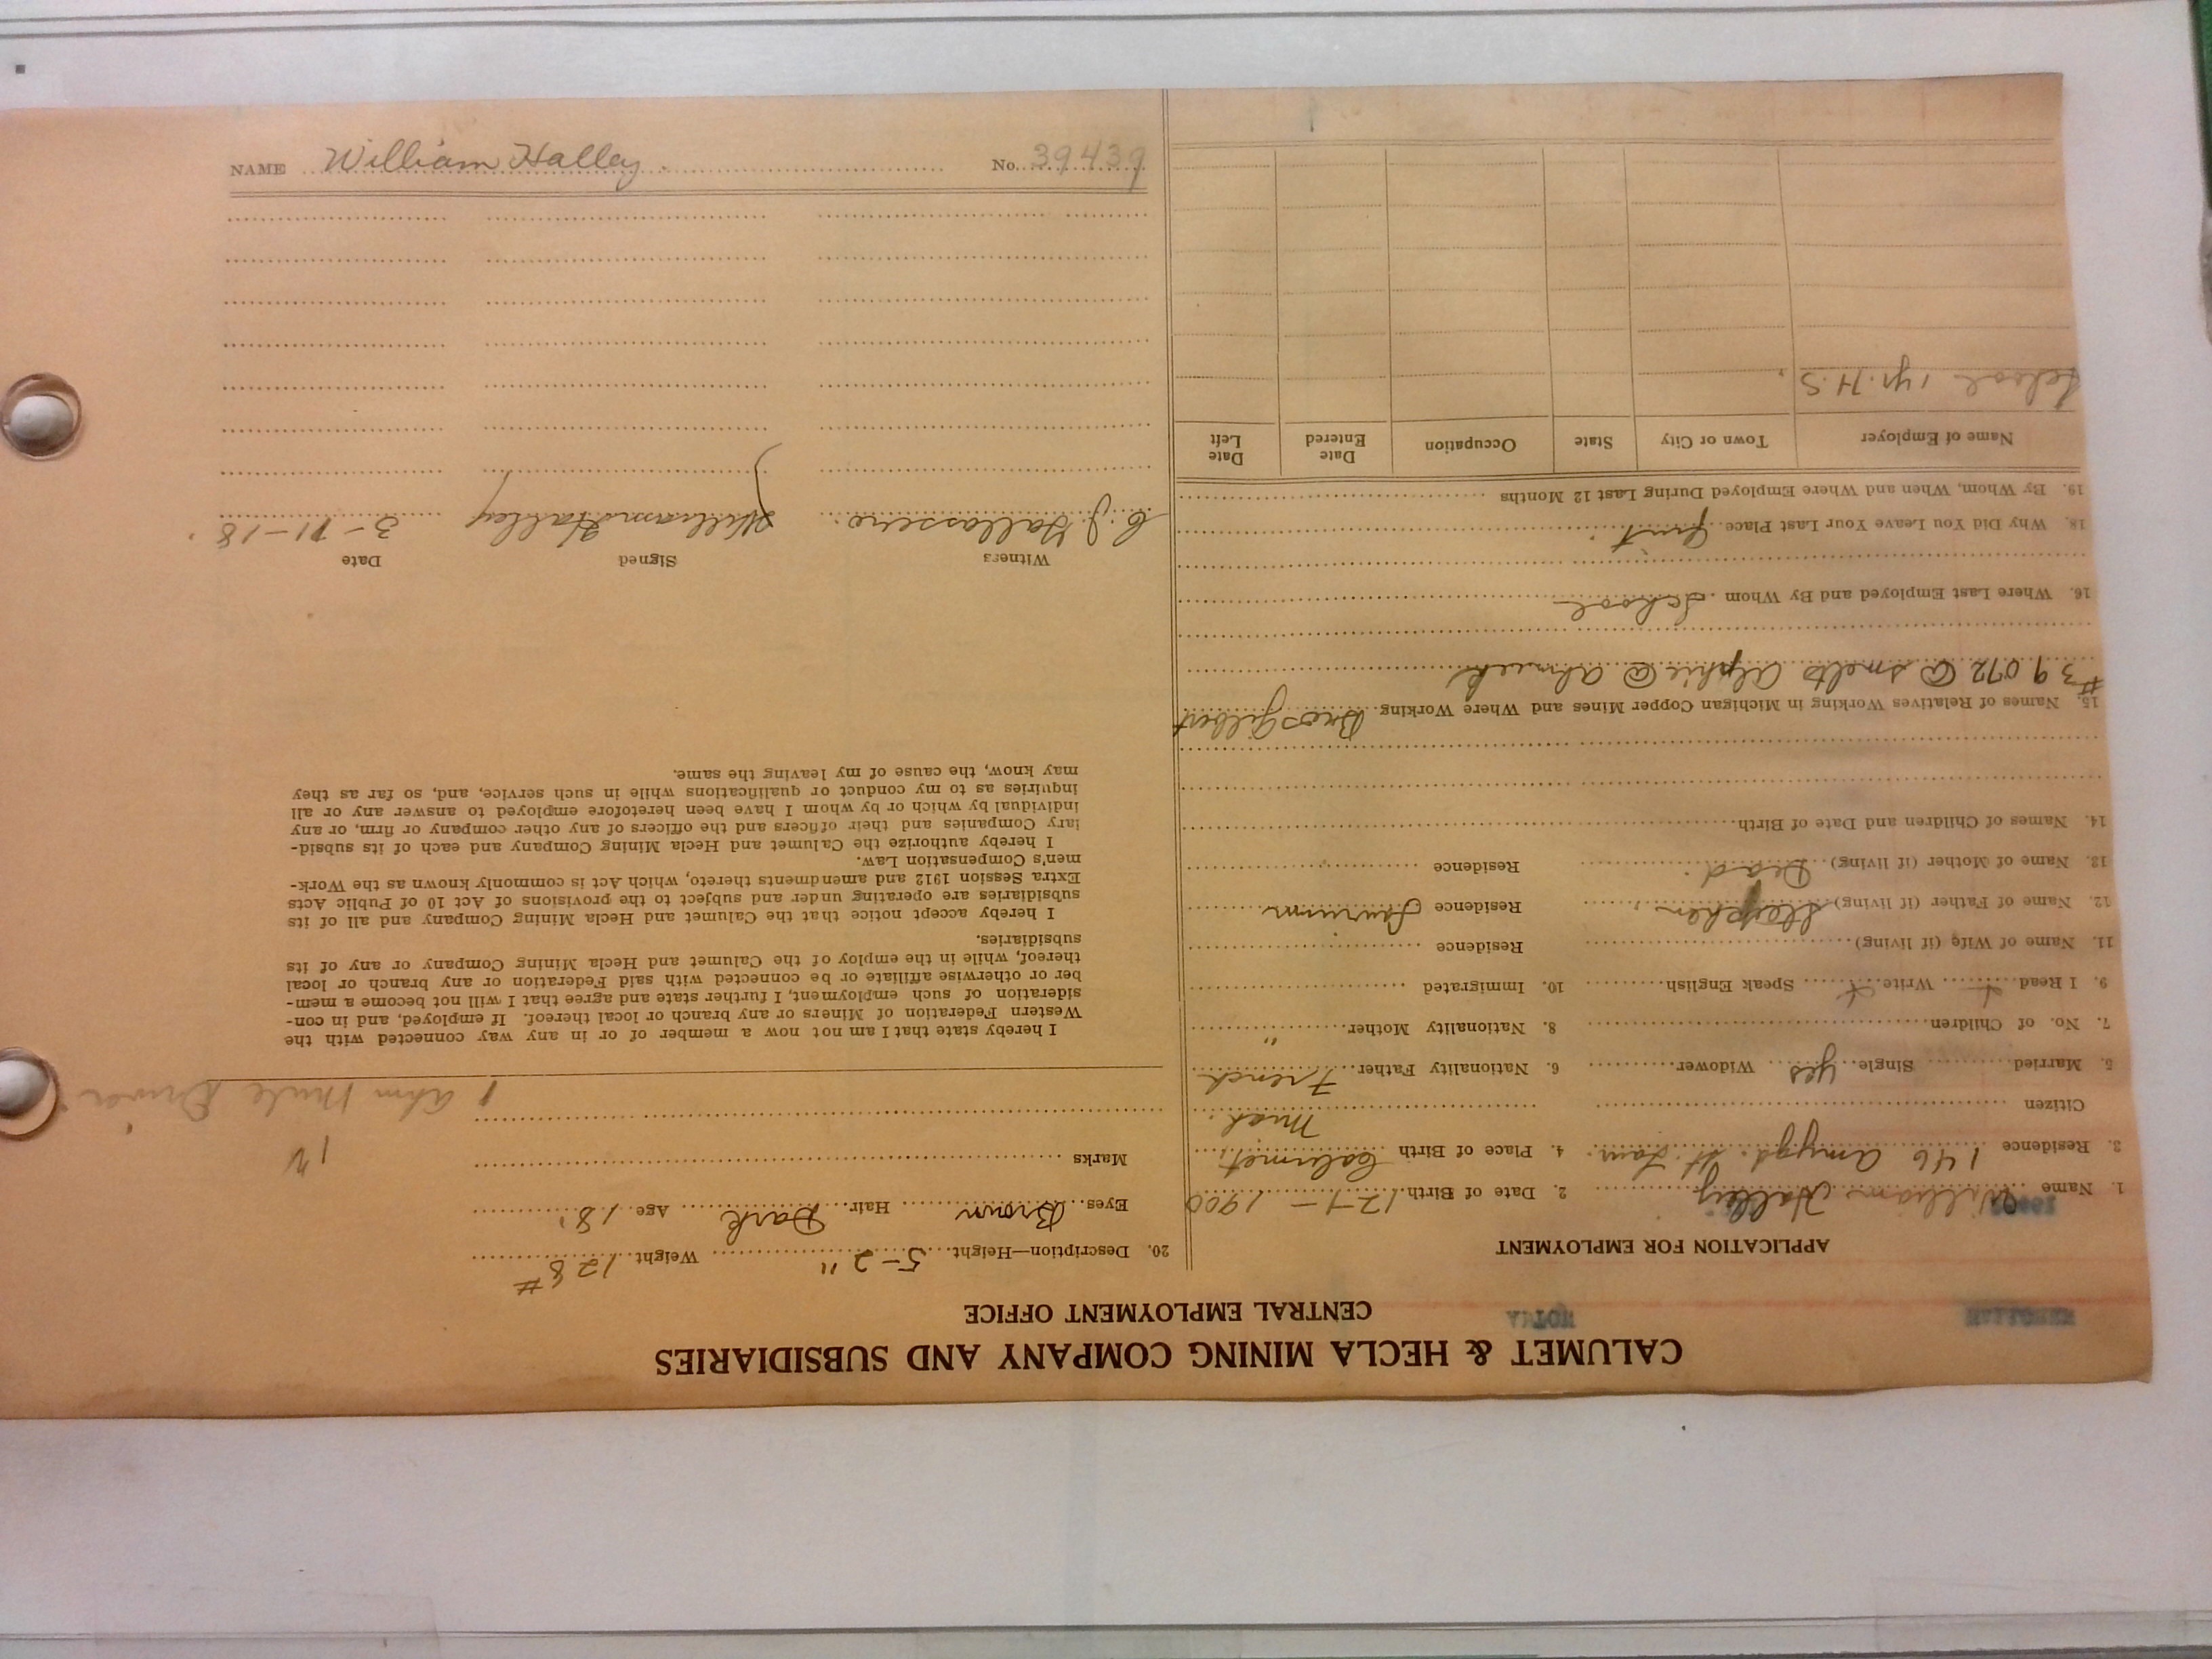 CALUMET & HECLA MINING COMPANY AND SUBSIDIARIES
CENTRAL EMPLOYMENT OFFICE
APPLICATION FOR EMPLOYMENT
1. Name William Halley 2. Date of Birth 12-1-1900
3. Residence 146 Amygd. St. Laur. 4. Place of Birth Calumet,
Citizen Mich.
5. Married Single yes Widower 6. Nationality Father French
7. No. of Children 8. Nationality Mother "
9. I Read Write Speak English 10. Immigrated
11. Name of Wife (if living) Residence
12. Name of Father (if living) Stephen Residence Laurium
13. Name of Mother (if living) Dead. Residence
14. Names of Children and Date of Birth
15. Names of Relatives Working in Michigan Copper Mines and Where Working Bros Gilbert
#39072 @ smelts @ Ahmeek
16. Where Last Employed and By Whom School
18. Why Did You Leave Your Last Place Quit.
19. By Whom, When and Where Employed During Last 12 Months
Name of Employer Town or City State Occupation Date Entered Date Left
School 1 yr. H.S.
20. Description—Height 5-2" Weight 128#
Eyes Brown Hair Dark Age 18
Marks
Ahm Mule Driver
I hereby state that I am not now a member of or in any way connected with the
Western Federation of Miners or any branch or local thereof. If employed, and in con-
sideration of such employment, I further state and agree that I will not become a mem-
ber or otherwise affiliate or be connected with said Federation or any branch or local
thereof, while in the employ of the Calumet and Hecla Mining Company or any of its
subsidiaries.
I hereby accept notice that the Calumet and Hecla Mining Company and all of its
subsidiaries are operating under and subject to the provisions of Act 10 of Public Acts
Extra Session 1912 and amendments thereto, which Act is commonly known as the Work-
men's Compensation Law.
I hereby authorize the Calumet and Hecla Mining Company and each of its subsid-
iary Companies and their officers and the officers of any other company or firm, or any
individual by which or by whom I have been heretofore employed to answer any or all
inquiries as to my conduct or qualifications while in such service, and, so far as they
may know, the cause of my leaving the same.
Witness Signed Date
C. J. William Halley 3-11-18
NAME William Halley No. 39439